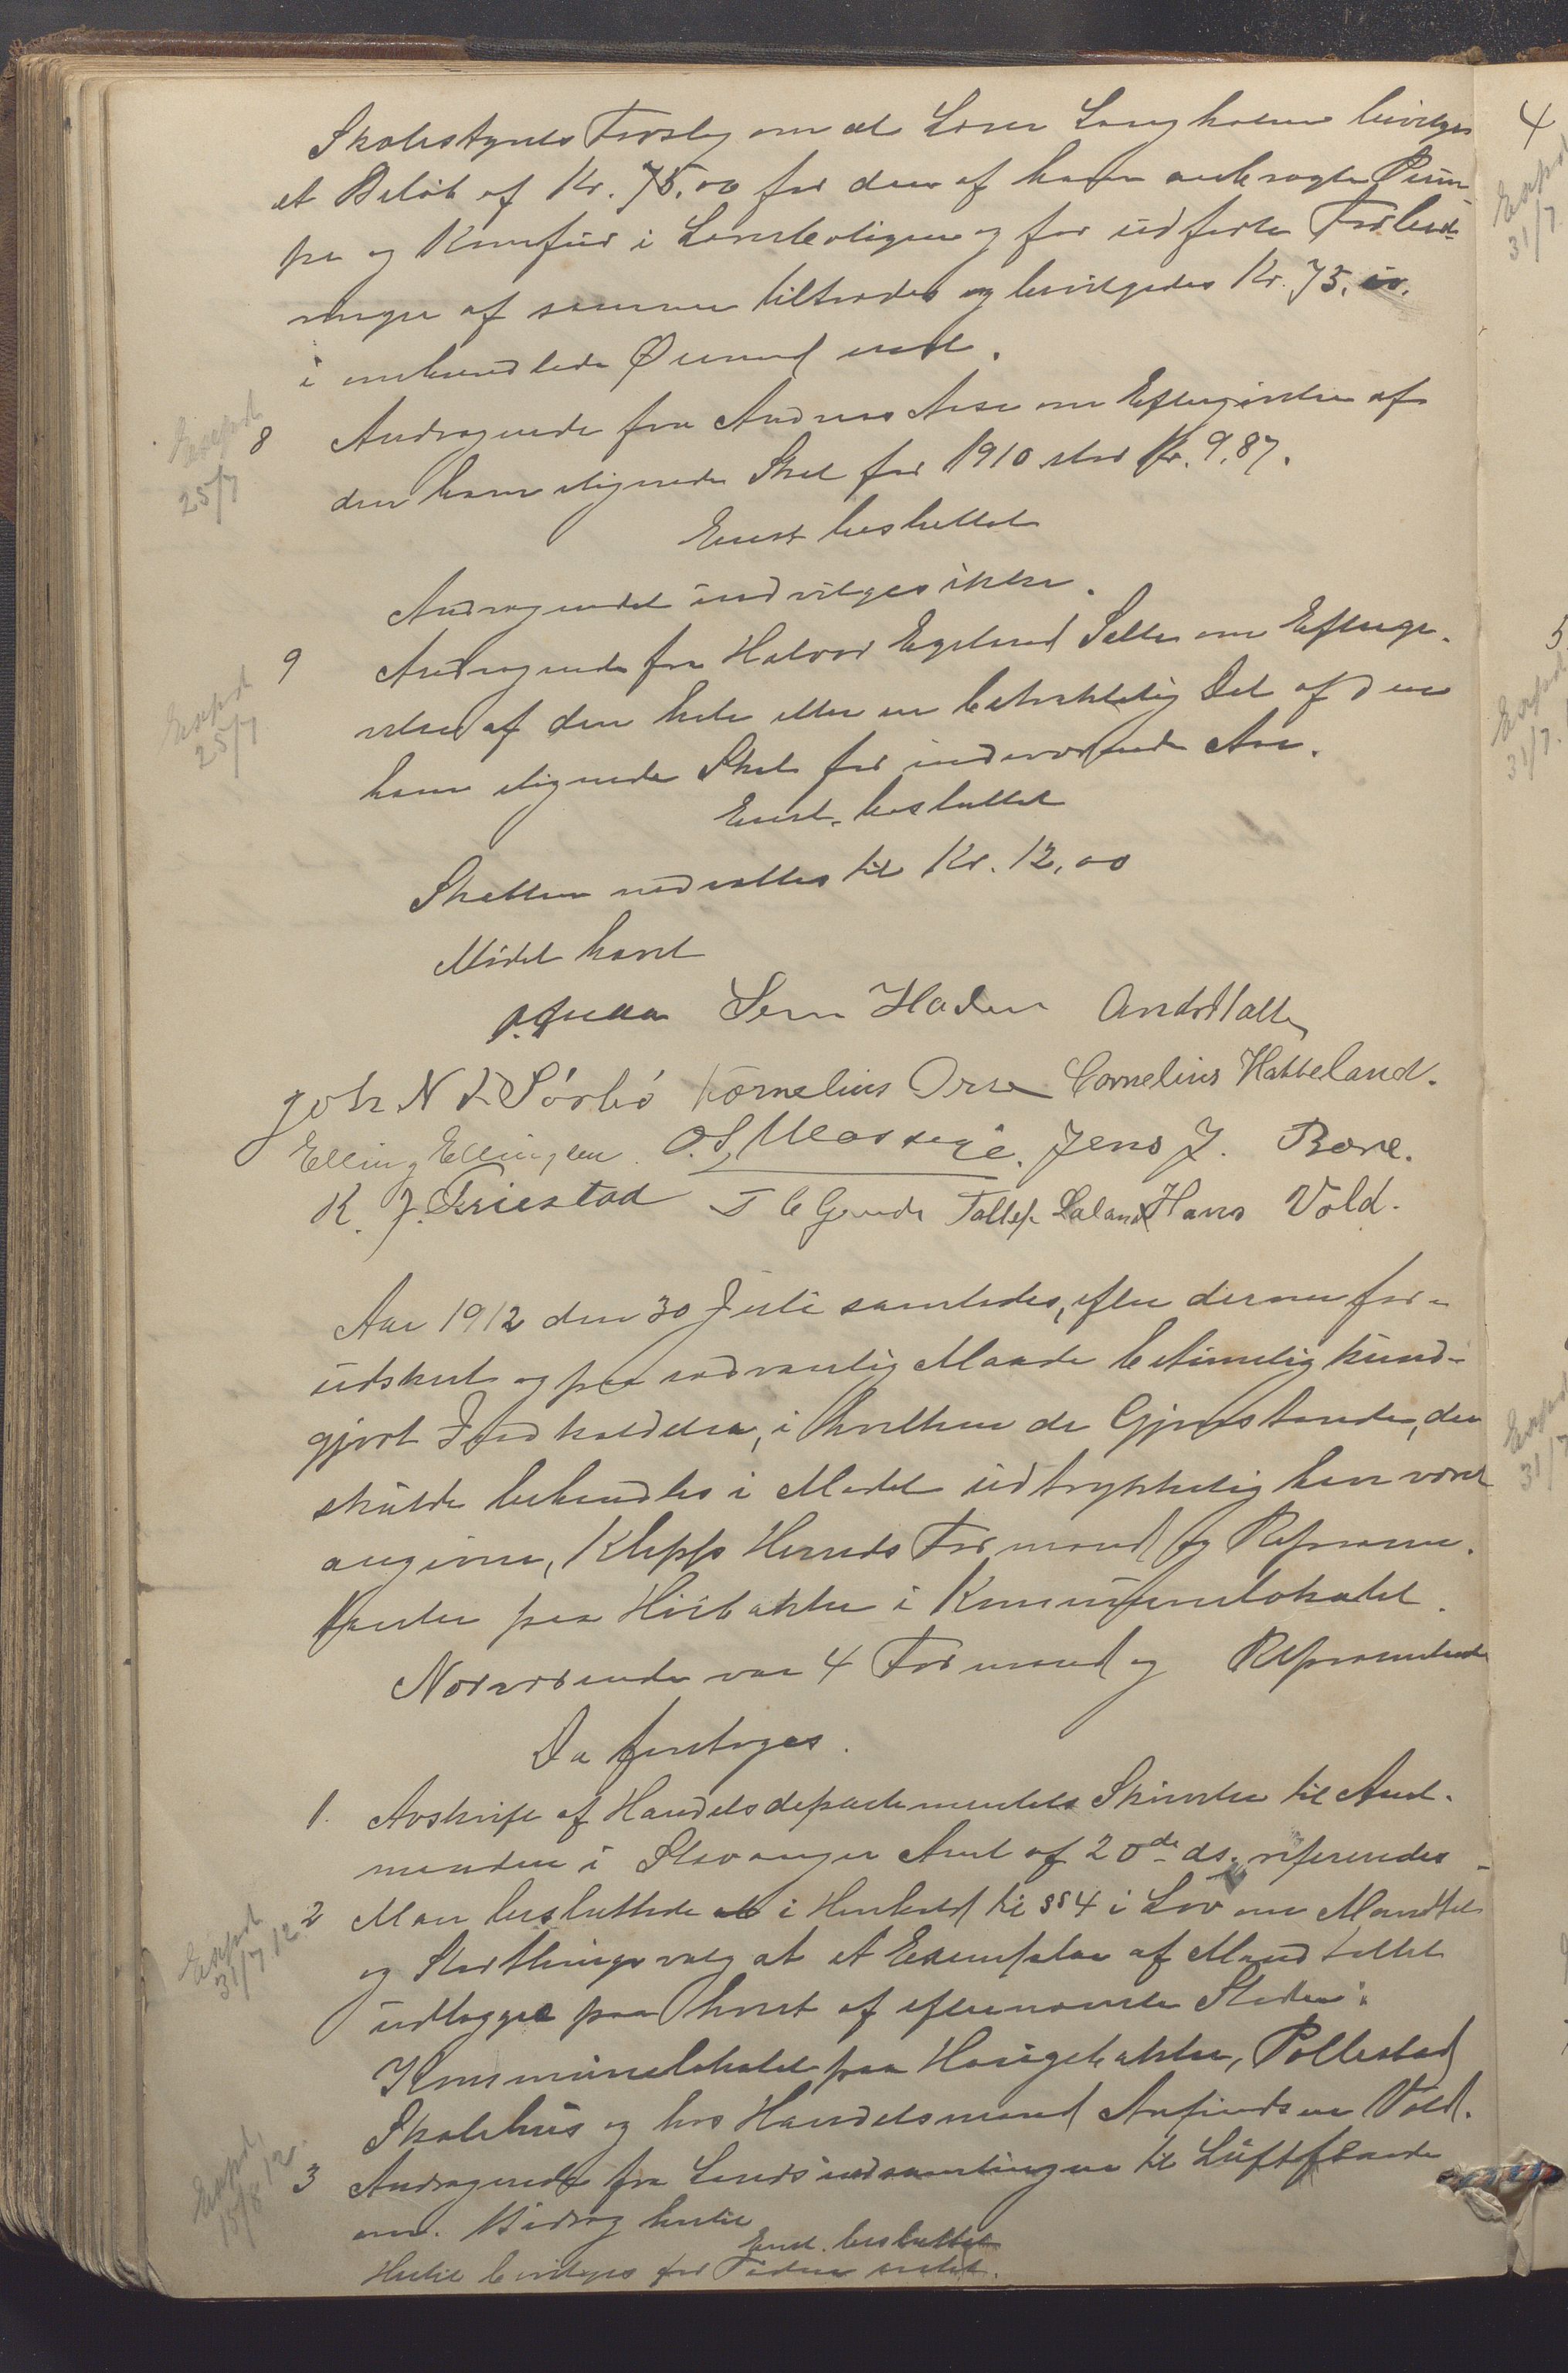 Skolestyrets Forslag om at Lærer Langholen bevilges
et Beløb af Kr. 75.00 for den af ham anbragte Pum-
pe og Komfur i Lærerboligen og for udførte Forbed-
ringer af samme tiltrædes og bevilgedes Kr. 75.00.
i omhandlede Øiemed
Expd 25/7
8 Andragende fra Andreas Aase om Eftergivelse af
den ham ilignede Skat for 1910 stor Kr. 9.87.
Enst besluttet
Andragendet indvilges ikke.
Expd 25/7
9 Andragende fra Halvor Egeland Salte om Eftergi-
velse af den hele eller en betraktelig Del af den
ham ilignede Skat for indeværende Aar.
Enst. besluttet
Skatten nedsættes til Kr. 12,00
Mødet hævet
Sem Hadn Andr Salte
John N L Sörbö Kornelius Orre Cornelius Hatteland.
Elling Ellingsen O. S. Mossige. Jens J. Bore.
K. J. Friestad T C Grude Tollef Laland Hans Vold.
Aar 1912 den 30 Juli samledes, efter dertil for-
udskut og paa sædvanlig Maade betimelig kund-
gjort Indkaldelse, i hvilken de Gjenstande, der
skulde behandles i Mødet udtrykkelig har været
angivne, Klepps Herreds Formænd og Repræsen-
tanter paa Hauebakken i Kommunelokalet.
Nærværende var 4 Formænd og Repræsentanter
Da foretoges.
1. Avskrift af Handelsdepartementets Skrivelse til Amt-
manden i Stavanger Amt af 20de ds. refereredes
Expd 31/7 12
2 Man besluttede i Henhold til §§ 4 i Lov om Mandtal
og Storthingsvalg at et Exemplar af Mandtallet
udlægges paa hvert af efternævnte Steder:
Kommunelokalet paa Haugebakken, Pollestad
Skolehus og hos Handelsmand Anfindsen Vold.
Expd. 15/8 12
3 Andragende fra Landsindsamlingen til Luftflaade
om Bidrag hertil
Enst. besluttet
Hertil bevilges for Tiden intet.
4
Expd 31/7
5
Expd 31/7.
Expd 31/7